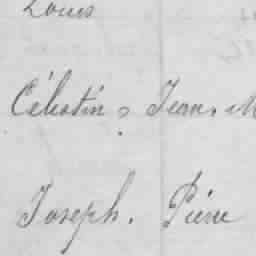 Louis
Célestin, Jean, M
Joseph. Piére